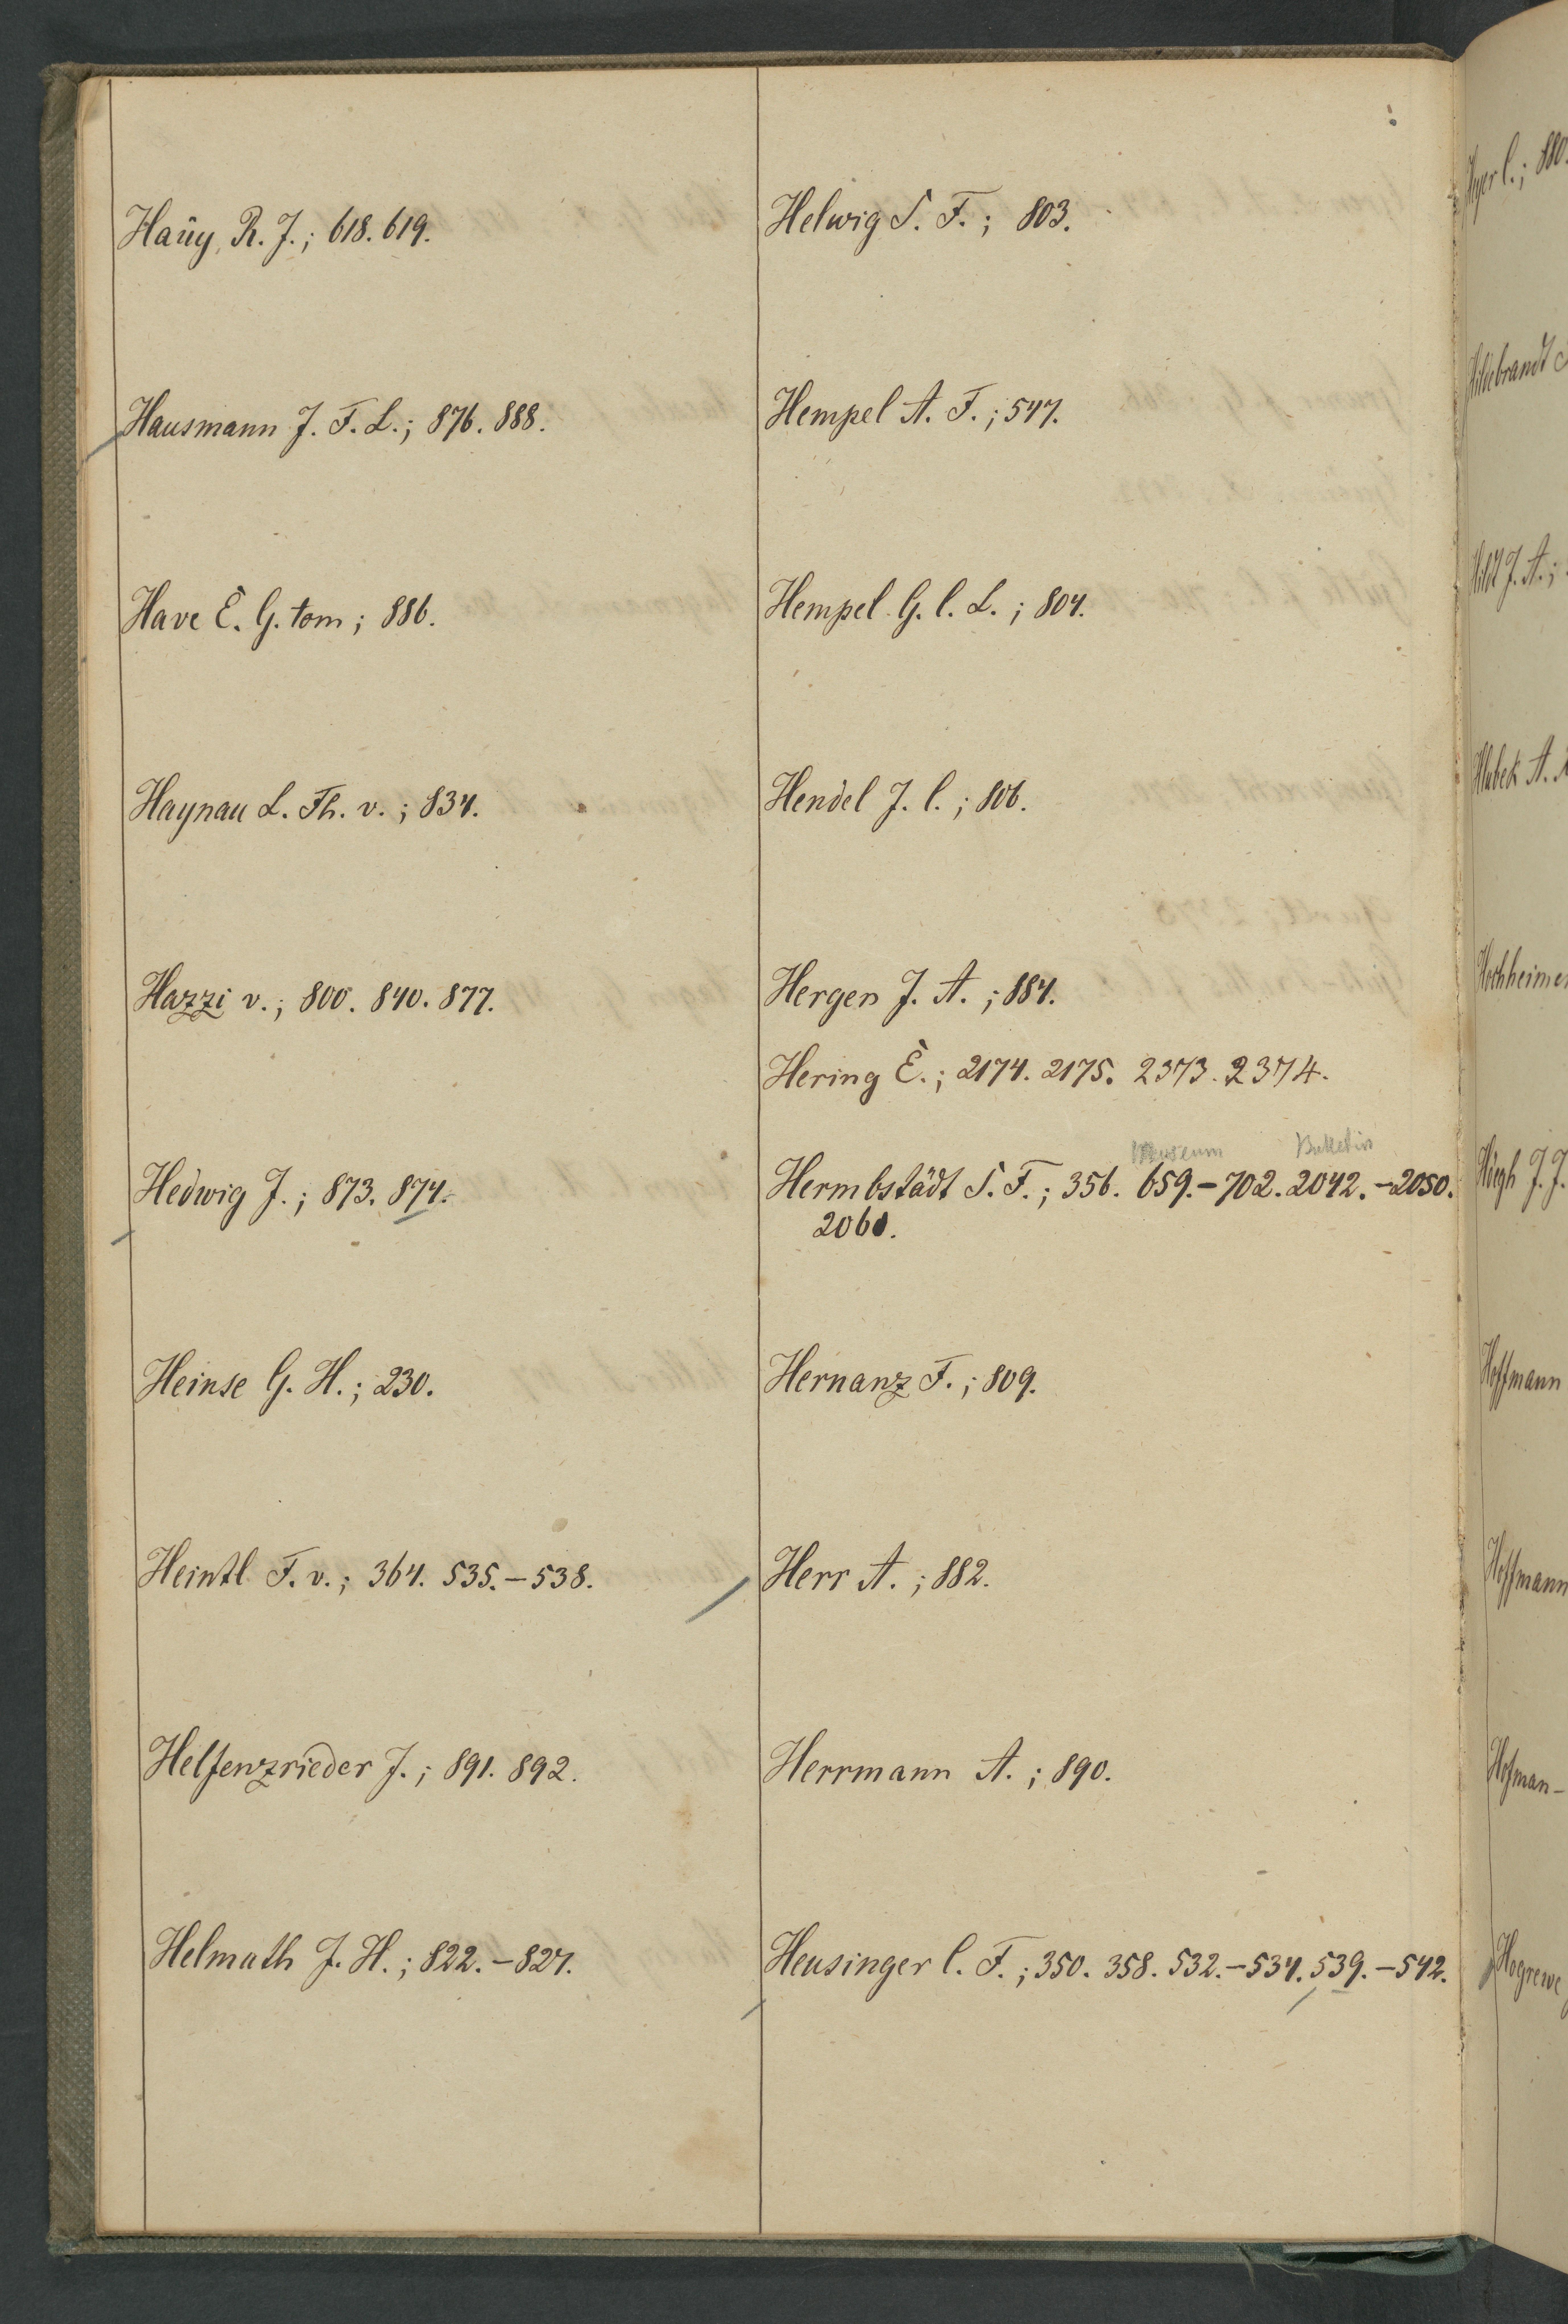 Haüy, R. J.; 618. 619.
Hausmann J. F. L.; 876. 888.
Have E. G. tom; 886.
Haynau L. Th. v.; 834.
Hazzi v.; 800. 840. 877.
Hedwig J.; 873. 874.
Heinse G. H.; 230.
Heintl F. v.; 364. 535.-538.
Helfenzrieder J.; 891. 892.
Helmuth J. H.; 822.-827.
Helwig S. F.; 803.
Hempel A. F.; 547.
Hempel G. C. L.; 804.
Hendel J. C.; 806.
Hergen J. A.; 884.
Hering E.; 2174. 2175. 2373. 2374.
Museum Bulletin
Hermbstädt S. F.; 356. 659.-702. 2042.-2050.
2060.
Hernanz F.; 809.
Herr A.; 882.
Herrmann A.; 890.
Heusinger C. F.; 350. 358. 532.-534. 539.-542.
Hildebrandt
Hildt J. A.;
Hlubek
Hochheimer
Höegh J. J.
Hoffmann
Hoffmann
Hofman-
Hogrewe